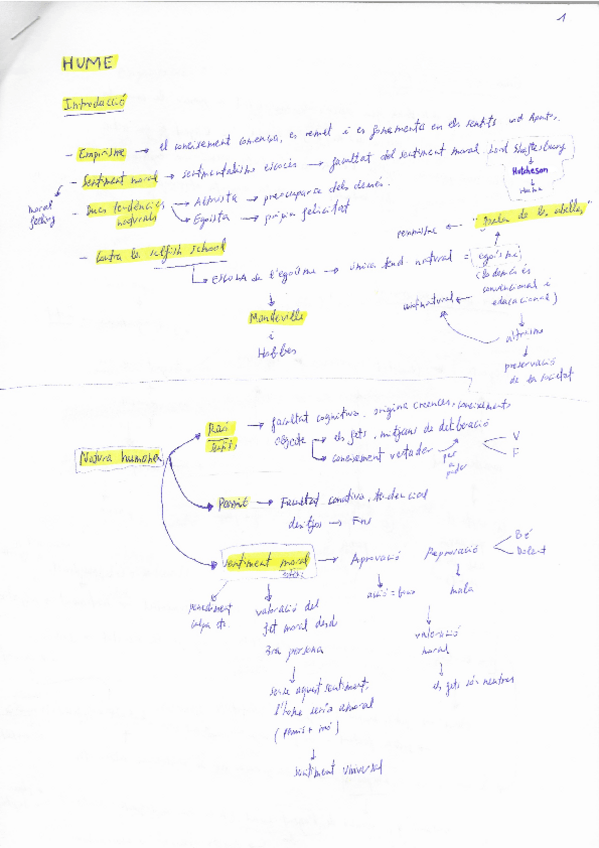 1
HUME
Introducció
- Empirisme → el coneixement comença, es remet i es fonamenta en els sentits
- Sentiment moral → sentimentalisme escocès → facultat del sentiment moral Lord Shaftesbury
↓
Hutcheson
↓
Hume
moral feeling
- Dues tendències naturals → Altruista → preocupar-se dels demés.
→ Egoista → pròpia felicitat
pessimisme ← "Faula de les abelles"
- Contra la selfish school
↳ ESCOLA de l'egoisme → única tend natural = egoisme
(tendència convencional i educacional)
antinatural
altruisme
↓
preservació de la societat
↓
Mandeville
i
Hobbes
Natura humana
Raó → facultat cognitiva, origina creences, coneixements
sentits
objecte → els fets, mitjans de deliberació
→ coneixement vertader
V
F
Passió → Facultat conativa, tendencial
desitjos → Fins
sentiment moral → Aprovació Reprovació
Bé
Dolent
penediment culpa etc.
valoració del
fet moral desde
3ra persona
acció = bona
mala
↓
valoració
moral
↓
els fets són neutres
↓
sense aquest sentiment,
l'home seria amoral
(passió + raó)
↓
sentiment universal